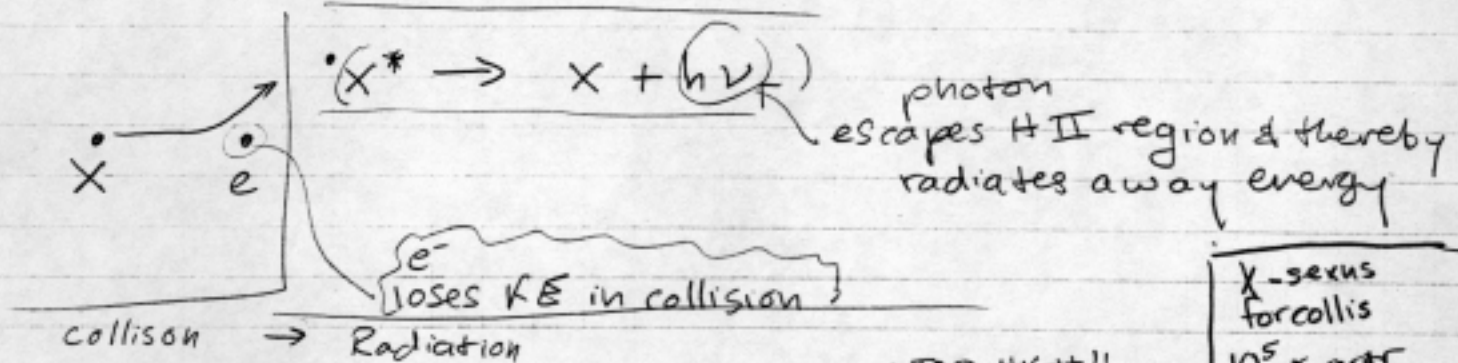 (X* → X + hν)
photon
escapes H II region & thereby
radiates away energy
X e
e⁻
loses KE in collision
collison → Radiation
X-sexns
for collis
10⁵